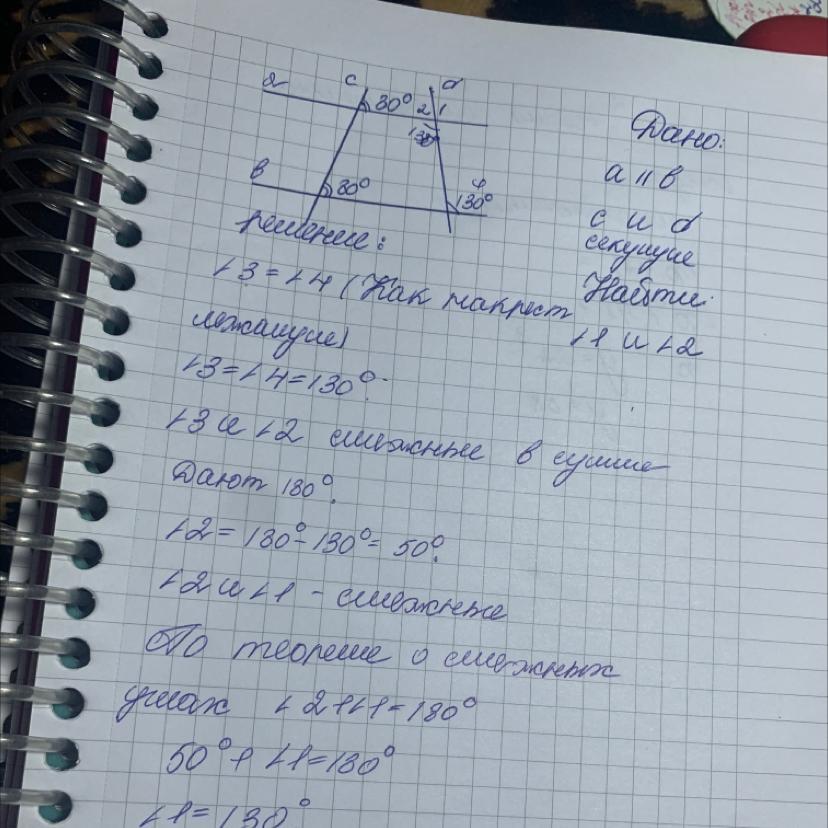 a c 80° 2 1 d
130°
в 80° 4 130°
Дано:
a || в
c и d
секущие
Найти:
∠1 и ∠2
решение:
∠3 = ∠4 (Как накрест
лежащие)
∠3 = ∠4 = 130°.
∠3 и ∠2 смежные в сумме
Дают 180°.
∠2 = 180° - 130° = 50°.
∠2 и ∠1 - смежные
По теореме о смежных
углах ∠2 + ∠1 = 180°
50° + ∠1 = 180°
∠1 = 130°